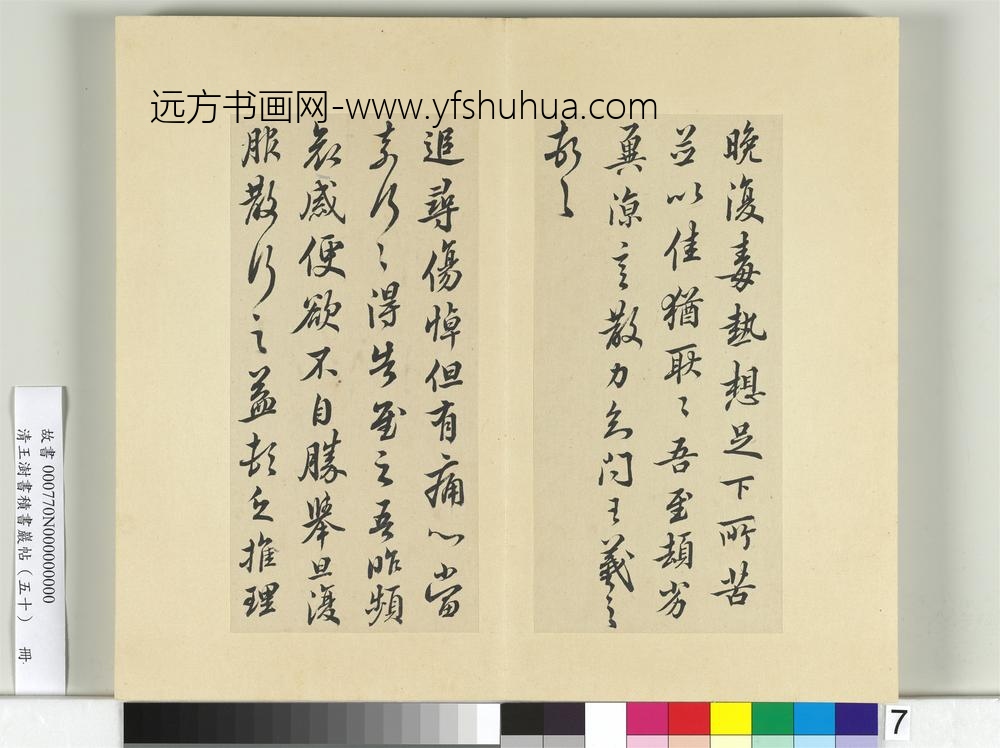 远方书画网-www.yfshuhua.com
晚復毒熱想足下所苦
並以佳猶耿〻吾至頓劣
冀涼言散力知問王羲之
頓首
追尋傷悼但有痛心當
奈何〻得告慰之吾昨頻
哀感便欲不自勝舉旦復
服散行之益頓乏推理
故書 000770N000000000
清王澍書積書巖帖（五十） 冊
7